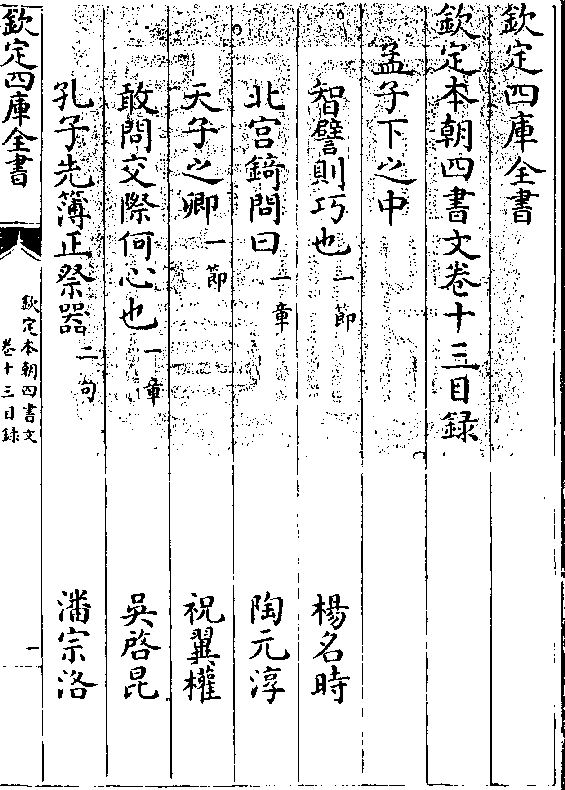 欽定四庫全書
欽定本朝四書文卷十三目録
孟子下之中
智譬則巧也 一節 楊名時
北宫錡問曰 一章 陶元淳
天子之卿 一節 祝翼權
敢問交際何心也 一章 吳啓昆
孔子先簿正祭器 二句 潘宗洛
欽定四庫全書
欽定本朝四書文
卷十三目録
一